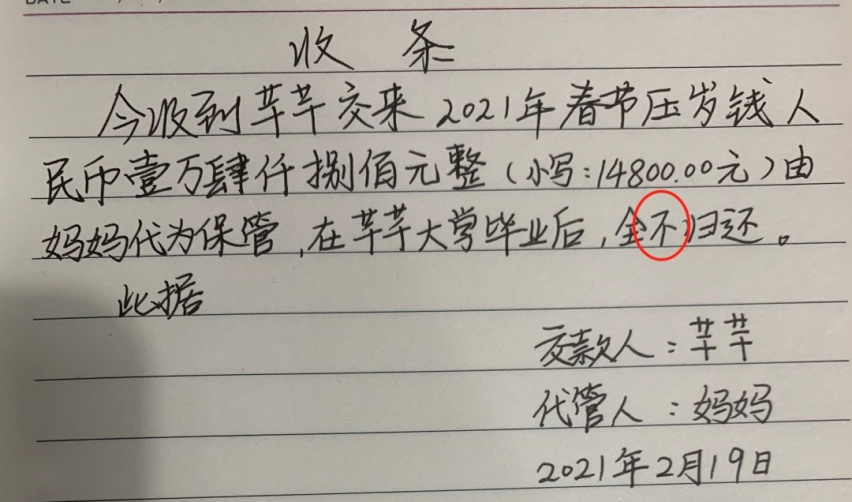 收条
今收到芊芊交来2021年春节压岁钱人
民币壹万肆仟捌佰元整(小写:14800.00元)由
妈妈代为保管,在芊芊大学毕业后,全不归还。
此据
交款人:芊芊
代管人:妈妈
2021年2月19日